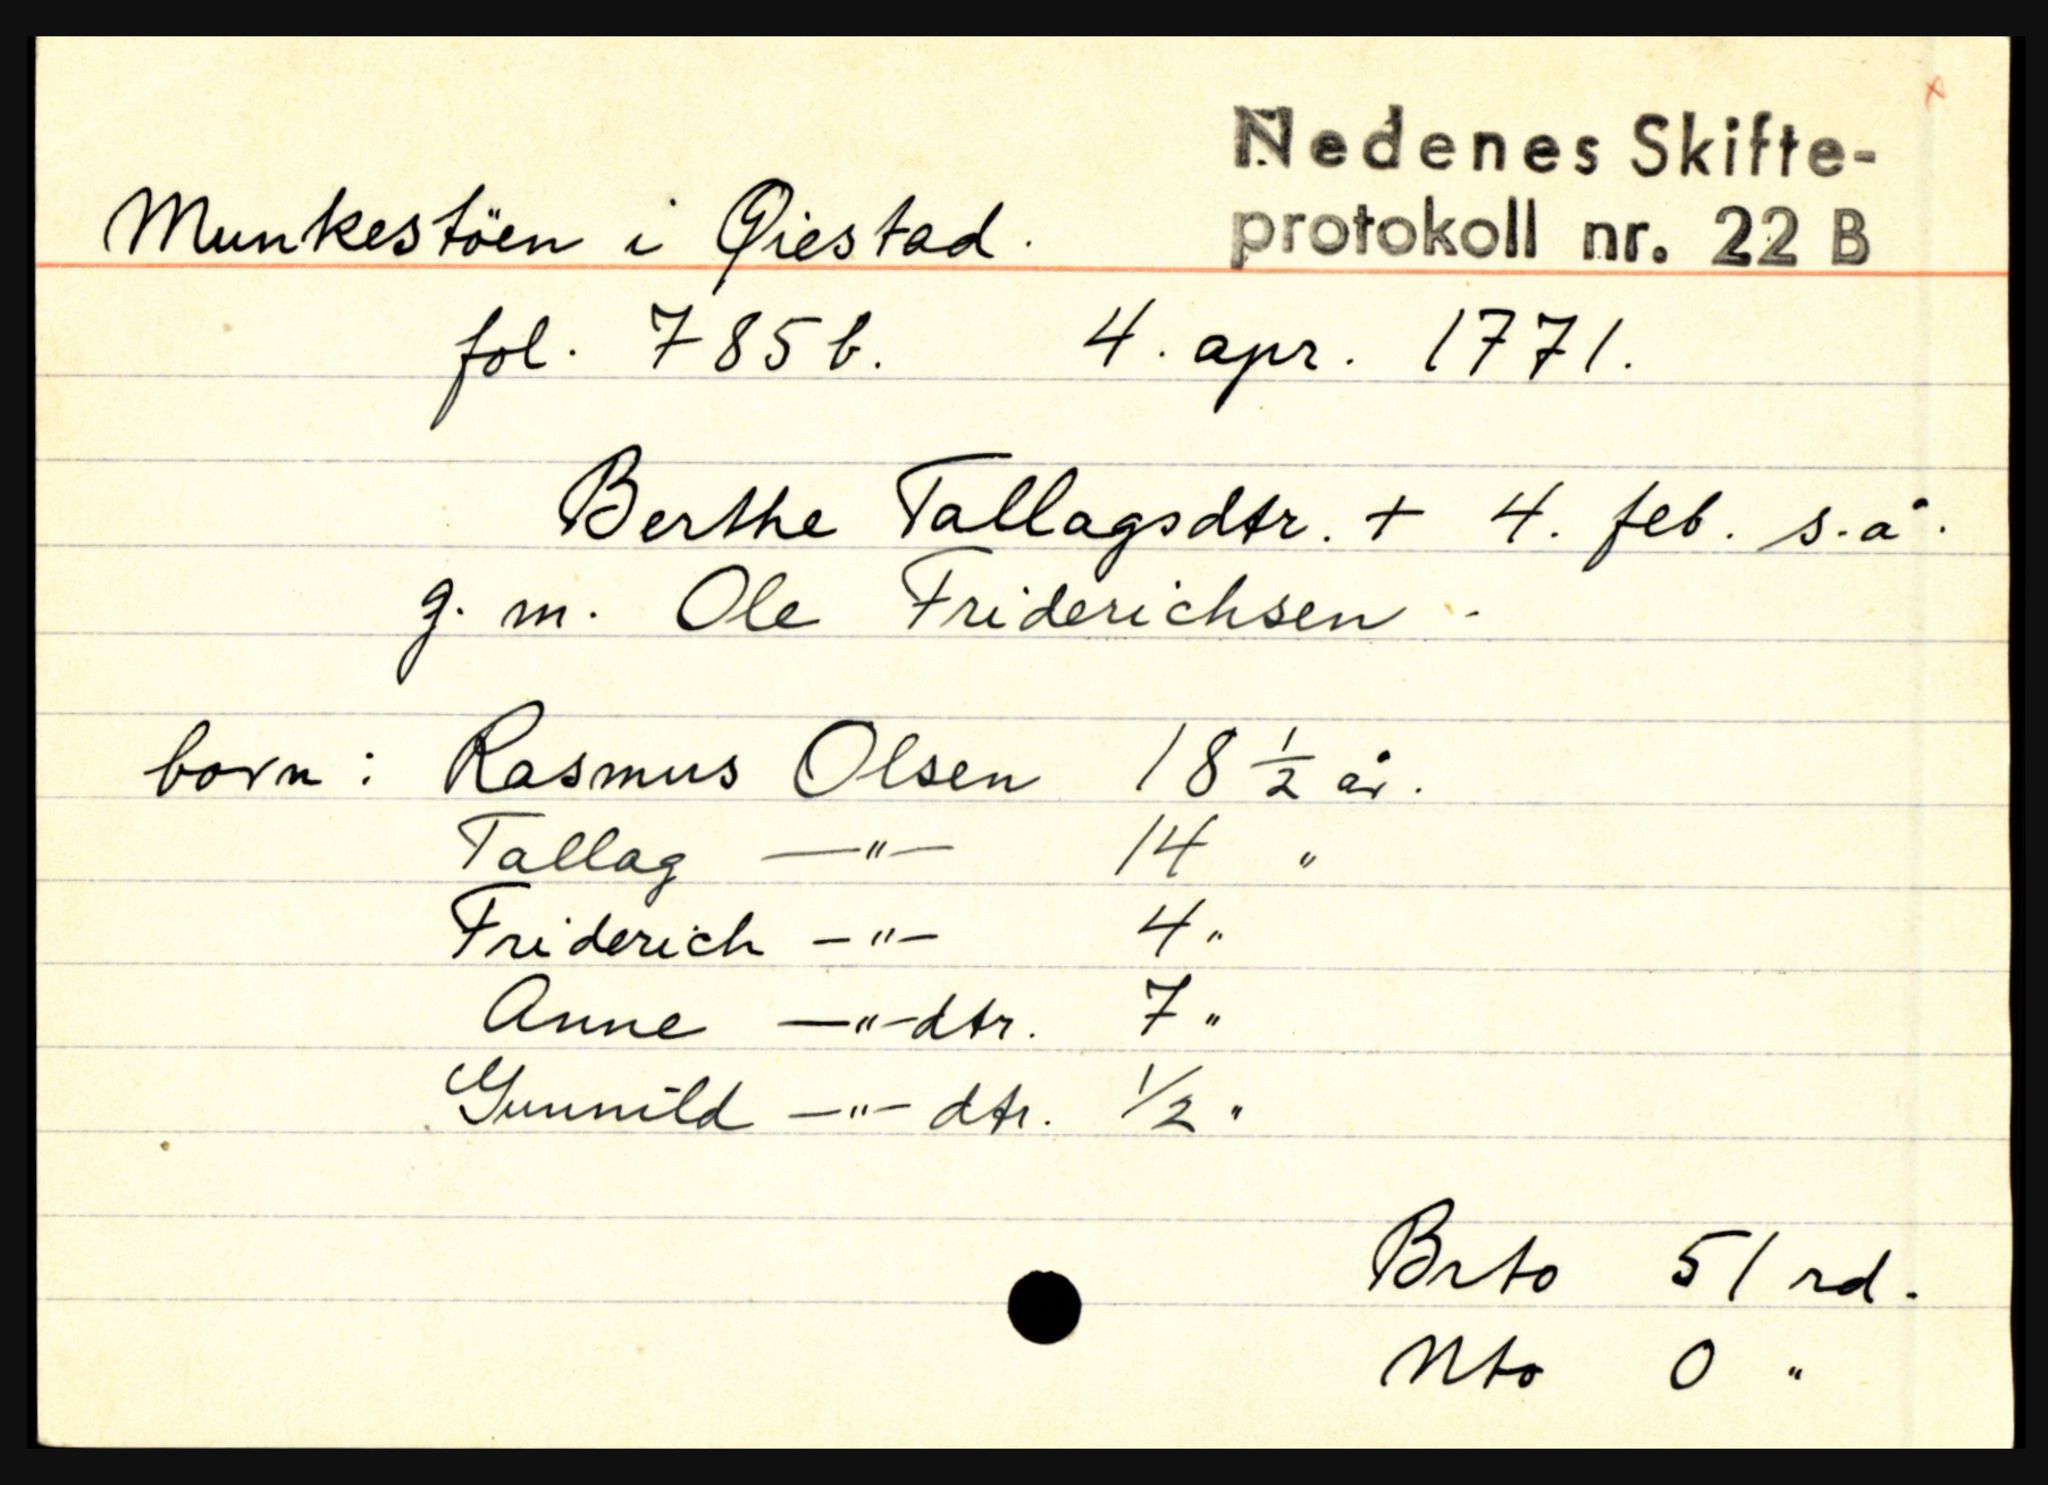 Nedenes Skifte-
protokoll nr. 22 B
Munkestöen i Øiestad.
fol. 785b. 4. apr. 1771.
Berthe Tallagsdtr. + 4. feb. s.å.
g. m. Ole Friderichsen -
born: Rasmus Olsen 18 1/2 år.
Tallag —"— 14 "
Friderich —"— 4 "
Anne —"—dtr. 7 "
Gunnild —"— dtr. 1/2 "
Brto 51 rd.
Nto 0 "